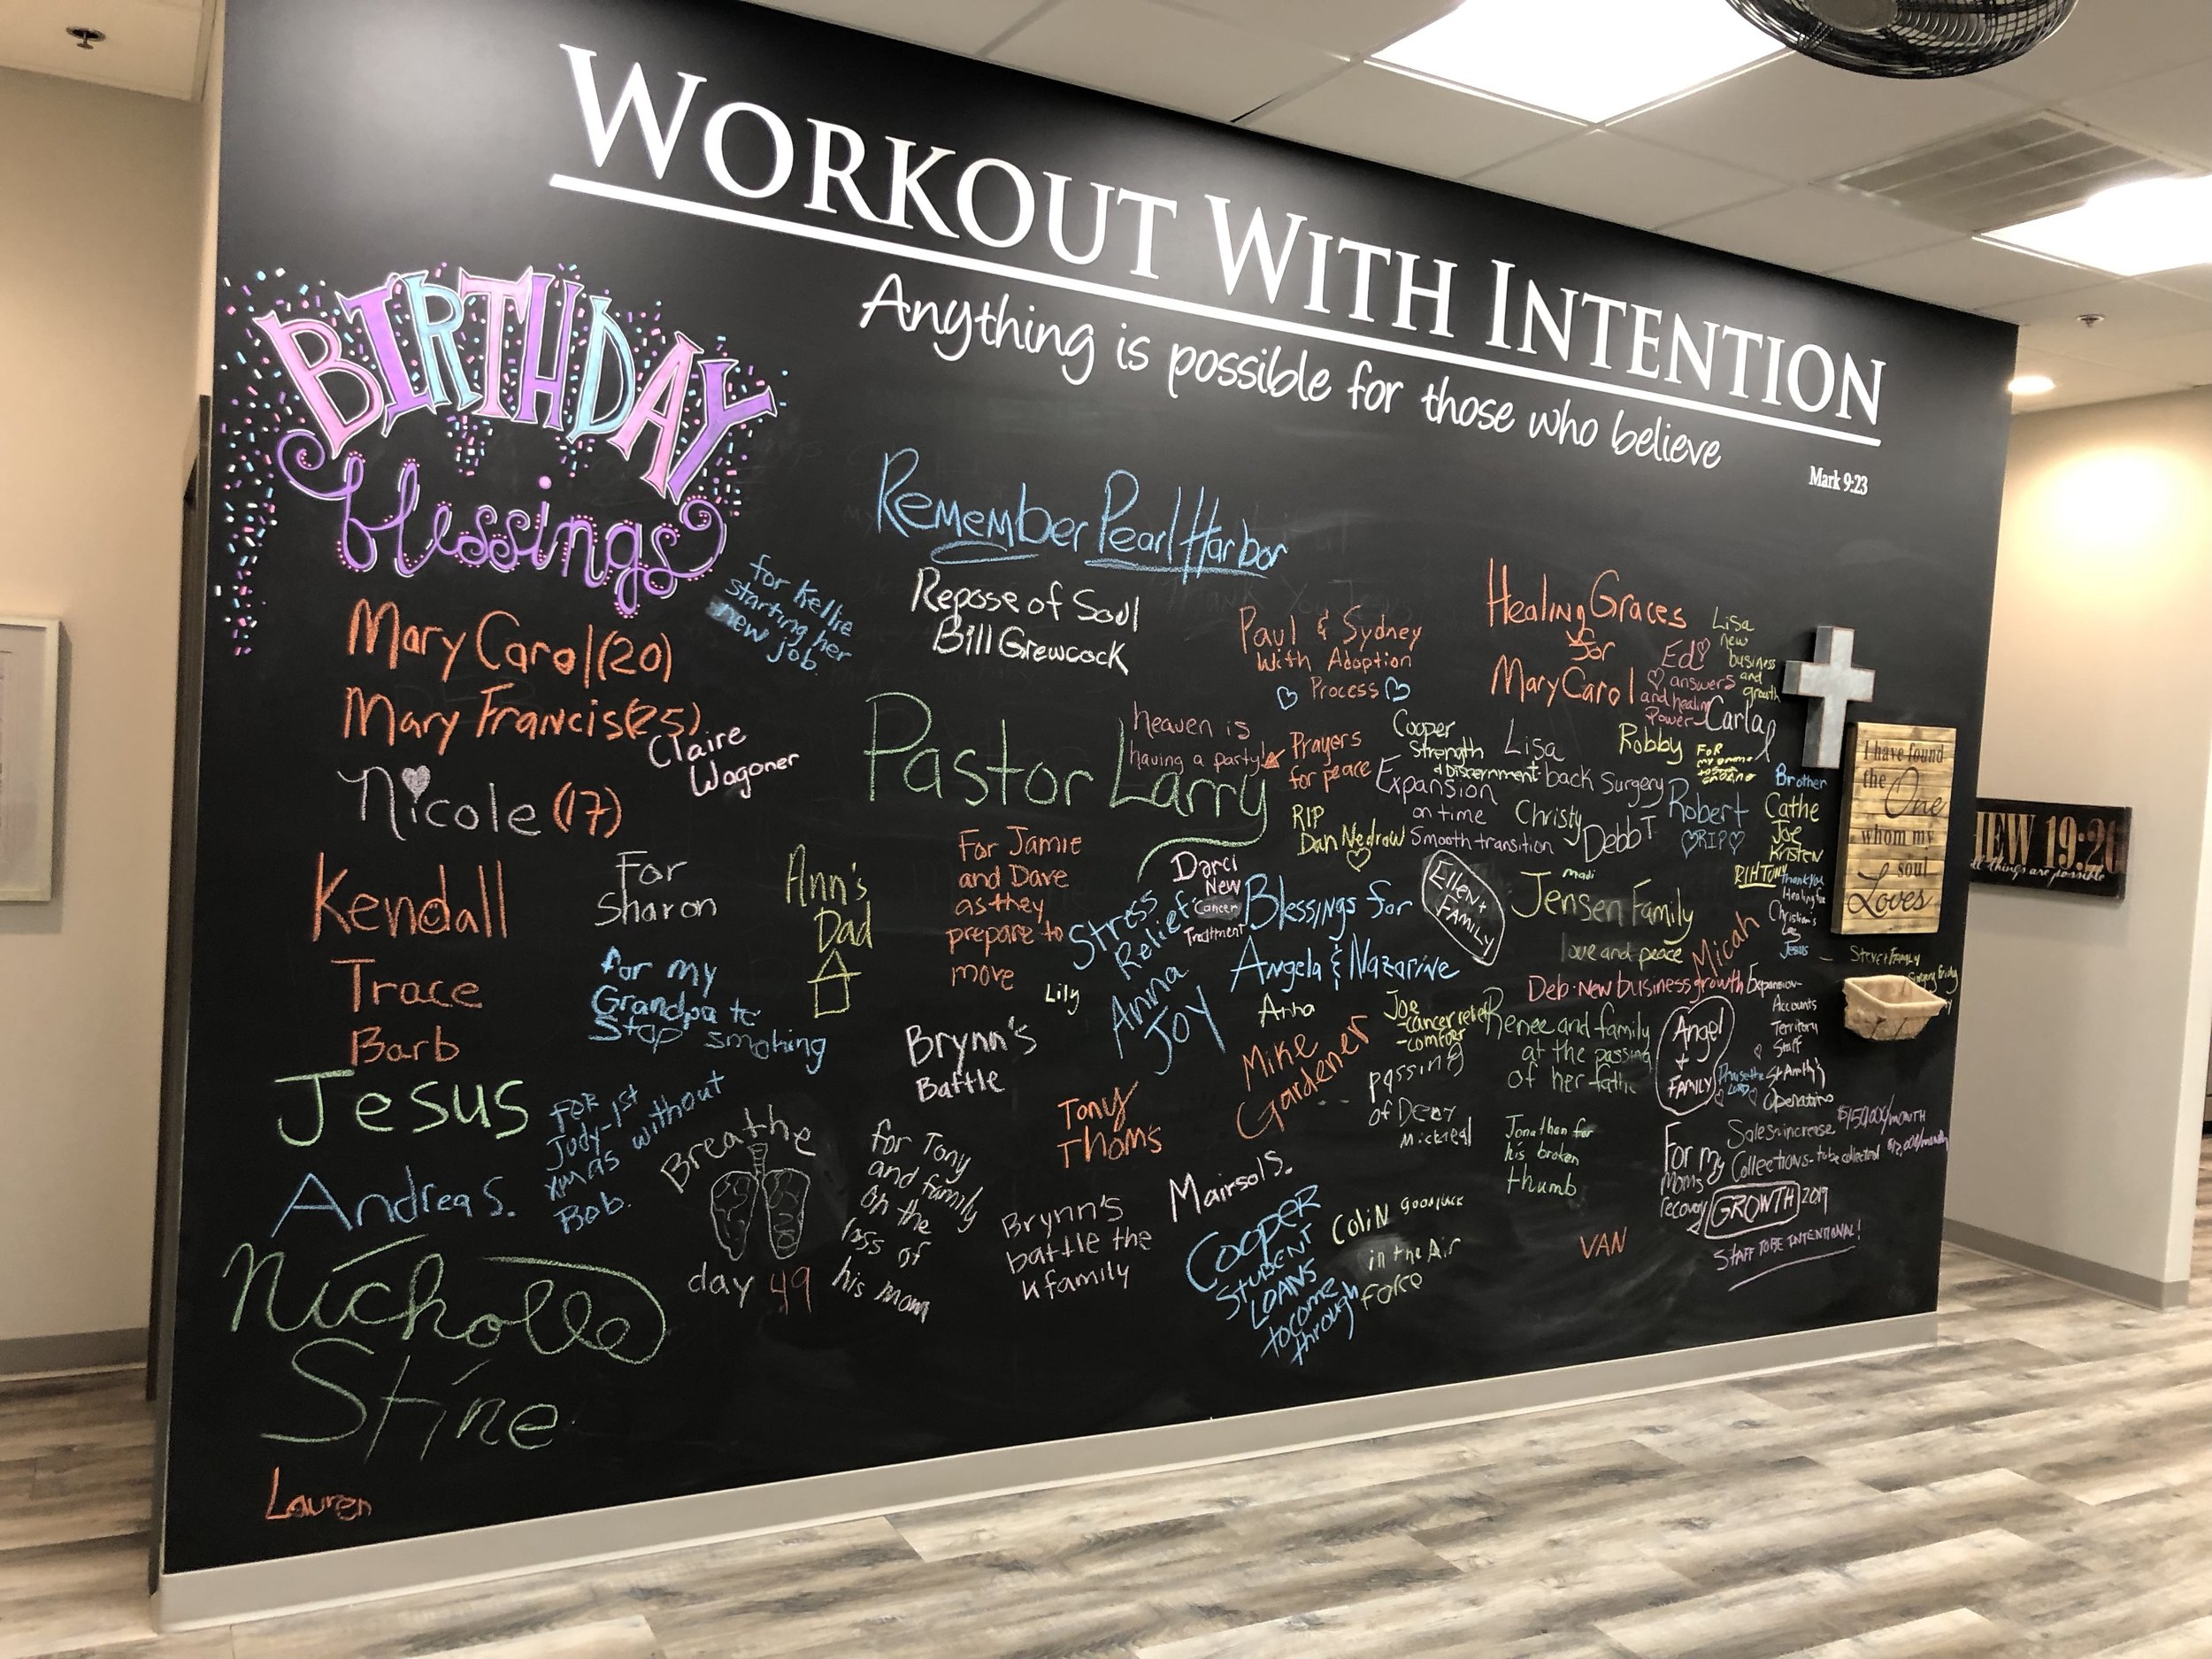 WORKOUT WITH INTENTION
Anything is possible for those who believe
Mark 9:23
BIRTHDAY
blessings
Mary Carol (20)
Mary Francis (25)
Nicole (17)
Kendall
Trace
Barb
Jesus
Andrea S.
Nicholle
Stine
Lauren
for Kellie
starting her
new job.
Claire
Wagoner
For
Sharon
for my
Grandpa to
Stop smoking
FOR
Judy-1st
xmas without
Bob.
Breathe
day 49
Ann's
Dad
for Tony
and family
on the
loss of
his mom
Remember Pearl Harbor
Repose of Soul
Bill Grewcock
Pastor Larry
heaven is
having a party!
For Jamie
and Dave
as they
prepare to
move
Lily
Brynn's
Battle
Brynn's
battle the
K family
Tony
Thom's
Stress
Relief
Anna
Joy
Darci
New
Cancer
Treatment
Paul & Sydney
With Adoption
Process
Prayers
for peace
RIP
Dan Nedrow
Blessings for
Angela & Nazarine
Anna
Mike
Gardener
Mairsol S.
Cooper
STUDENT
LOANS
to come
through
Colin good luck
in the Air
Force
Cooper
Strength
& Discernment
Expansion
on time
Smooth transition
Ellen +
FAMILY
Joe
-cancer relief
-comfort
passing
of Deny
Michael
Healing Graces
for
Mary Carol
Ed!
answers
and healing
Power
Lisa
new
business
and
growth
Carla
Lisa
back Surgery
Christy
Debb T
Robby
FOR
Robert
RIP
Brother
Cathe
Joe
Kristen
RIH Tony
Thank You
Healing for
Christian's
Leg
Jesus
madi
Jensen Family
love and peace
Micah
Deb-New business growth
Expansion-
Accounts
Territory
Staff
Operations
Renee and family
at the passing
of her father
Angel
+
FAMILY
Praise the
LORD
Jonathan for
his broken
thumb
VAN
For my
Moms
recovery
Sales increase $150,000/MONTH
Collections- to be collected
GROWTH 2019
STAFF TO BE INTENTIONAL!
I have found
the One
whom my
soul
Loves
Steve + Family
Surgery Friday
HEW 19:26
all things are possible